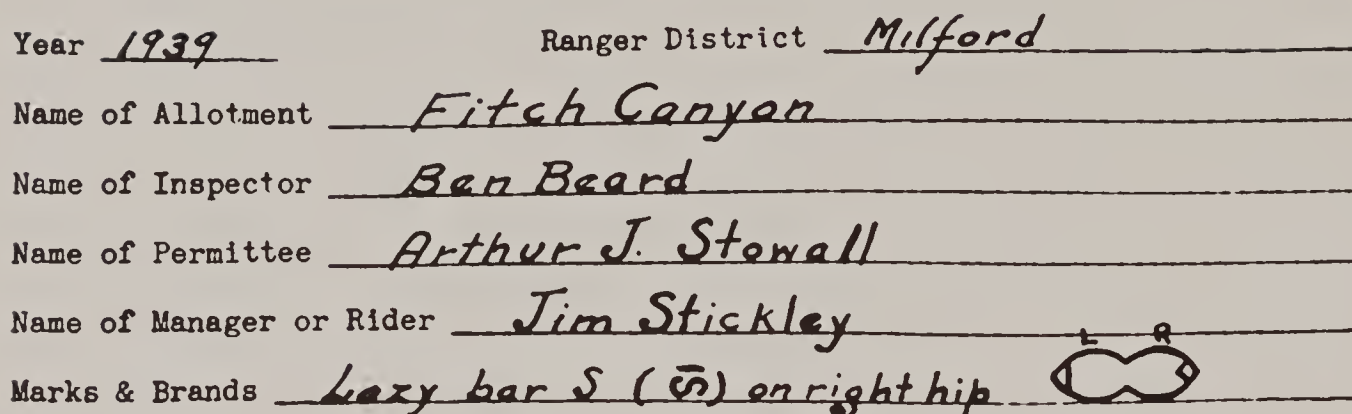 Year 1939 Ranger District Milford
Name of Allotment Fitch Canyon
Name of Inspector Ben Beard
Name of Permittee Arthur J. Stowall
Name of Manager or Rider Jim Stickley
L R
Marks & Brands Lazy bar S (S̅) on right hip